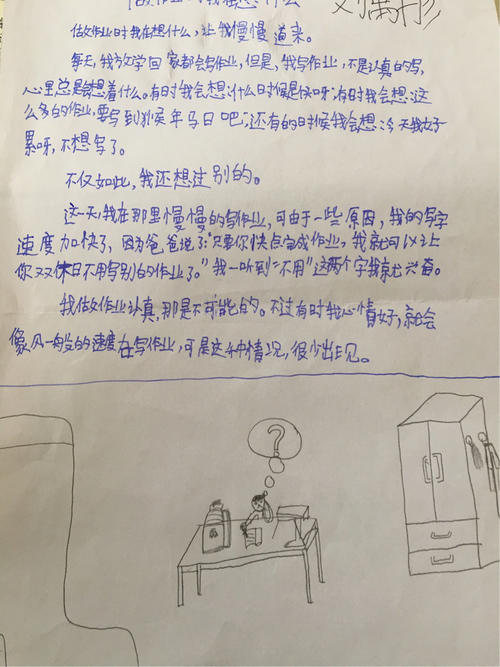 做作业时我在想什么
做作业时我在想什么,让我慢慢道来。
每天,我放学回家都会写作业,但是,我写作业,不是认真的写,
心里总是会想着什么。有时我会想:什么时候是个头呀;有时我会想:这
么多的作业,要写到猴年马日吧;还有的时候我会想:今天我好
累呀,不想写了。
不仅如此,我还想过别的。
这一天,我在那里慢慢的写作业,可由于一些原因,我的写字
速度加快了,因为爸爸说了:“只要你快点完成作业,我就可以让
你双休日不用写别的作业了。”我一听到“不用”这两个字我就兴奋。
我做作业认真,那是不可能的。不过有时我心情好,就会
像风一般的速度在写作业,可是这种情况,很少出现。
?